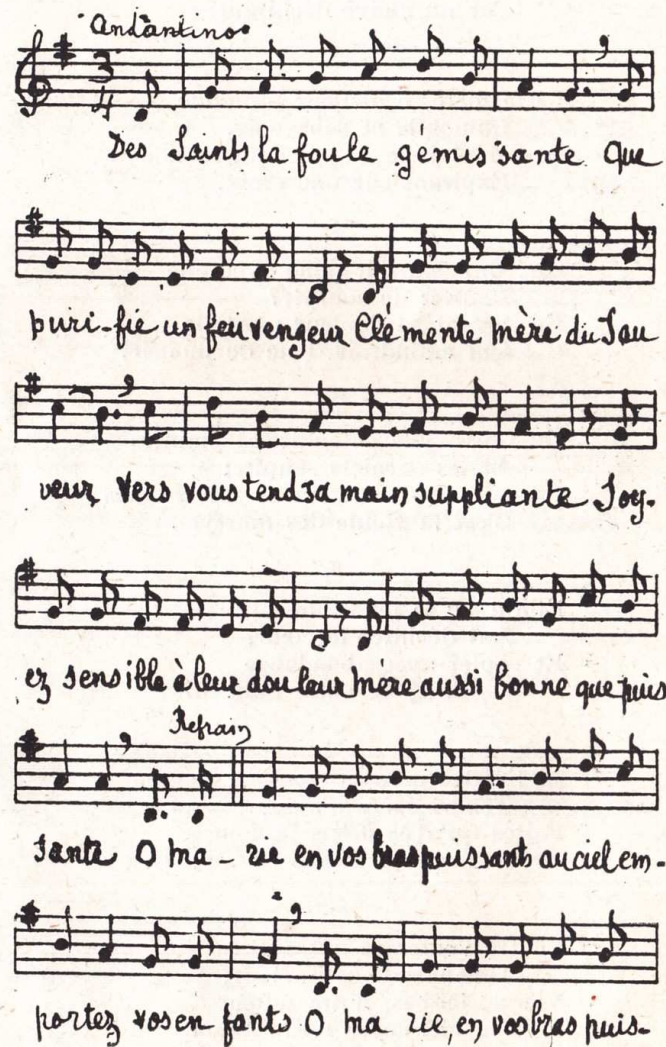 Andantino
3
4
Des Saints la foule gémis sante que
puri-fie un feu vengeur Clé mente mère du Sau
veur vers vous tend sa main suppliante Soy-
ez sensible à leur dou leur mère aussi bonne que puis
Refrain
sante O ma - rie en vos bras puissants au ciel em-
portez vos en fants O ma rie, en vos bras puis-